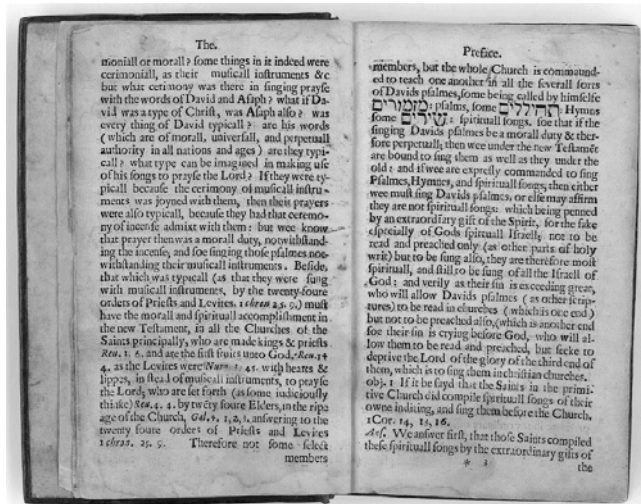 The.
moniall or morall? some things in it indeed were
cerimoniall, as their musicall instruments &c
but what cerimony was there in singing prayse
with the words of David and Asaph? what if Da-
vid was a type of Christ, was Asaph also? was
every thing of David typicall? are his words
(which are of morall, universall, and perpetuall
authority in all nations and ages) are they typi-
call? what type can be imagined in making use
of his songs to prayse the Lord? If they were ty-
picall because the cerimony of musicall instru-
ments was joyned with them, then their prayers
were also typicall, because they had that ceremo-
ny of incense admixt with them: but wee know
that prayer then was a morall duty, notwithstand-
ing the incense; and soe singing those psalmes not-
withstanding their musicall instruments. Beside,
that which was typicall (as that they were sung
with musicall instruments, by the twenty-foure
orders of Priests and Levites. 1 chron 25. 9.) must
have the morall and spirituall accomplishment in
the new Testament, in all the Churches of the
Saints principally, who are made kings & priests
Reu. 1. 6. and are the first fruits unto God. Reu. 14
4. as the Levites were Num. 3. 45. with hearts &
lippes, in stead of musicall instruments, to prayse
the Lord; who are set forth (as some iudiciously
thinke) Reu. 4. 4. by twēty foure Elders, in the ripe
age of the Church, Gal. 4. 1, 2, 3. answering to the
twenty foure orders of Priests and Levites
1 chron. 25. 9. Therefore not some select
members
Preface.
members, but the whole Church is commaund-
ed to teach one another in all the severall sorts
of Davids psalmes, some being called by himselfe
מזמורים: psalms, some תהילים: Hymns
some שירים: spirituall songs. soe that if the
singing Davids psalmes be a morall duty & ther-
fore perpetuall; then wee under the new Testamēt
are bound to sing them as well as they under the
old: and if wee are expresly commanded to sing
Psalmes, Hymnes, and spirituall songs, then either
wee must sing Davids psalmes, or else may affirm
they are not spirituall songs: which being penned
by an extraordiary gift of the Spirit, for the sake
especially of Gods spirituall Israell; not to be
read and preached only (as other parts of holy
writ) but to be sung also, they are therefore most
spirituall, and still to be sung of all the Israell of
God: and verily as their sin is exceeding great,
who will allow Davids psalmes (as other scrip-
tures) to be read in churches (which is one end)
but not to be preached also, (which is another end
soe their sin is crying before God, who will al-
low them to be read and preached, but seeke to
deprive the Lord of the glory of the third end of
them, which is to sing them in christian churches.
obj. 1 If it be sayd that the Saints in the primi-
tive Church did compile spirituall songs of their
owne inditing, and sing them before the Church.
1Cor. 14, 15, 16.
Ans. We answer first, that those Saints compiled
these spirituall songs by the extraordinary gifts of
* 3
the